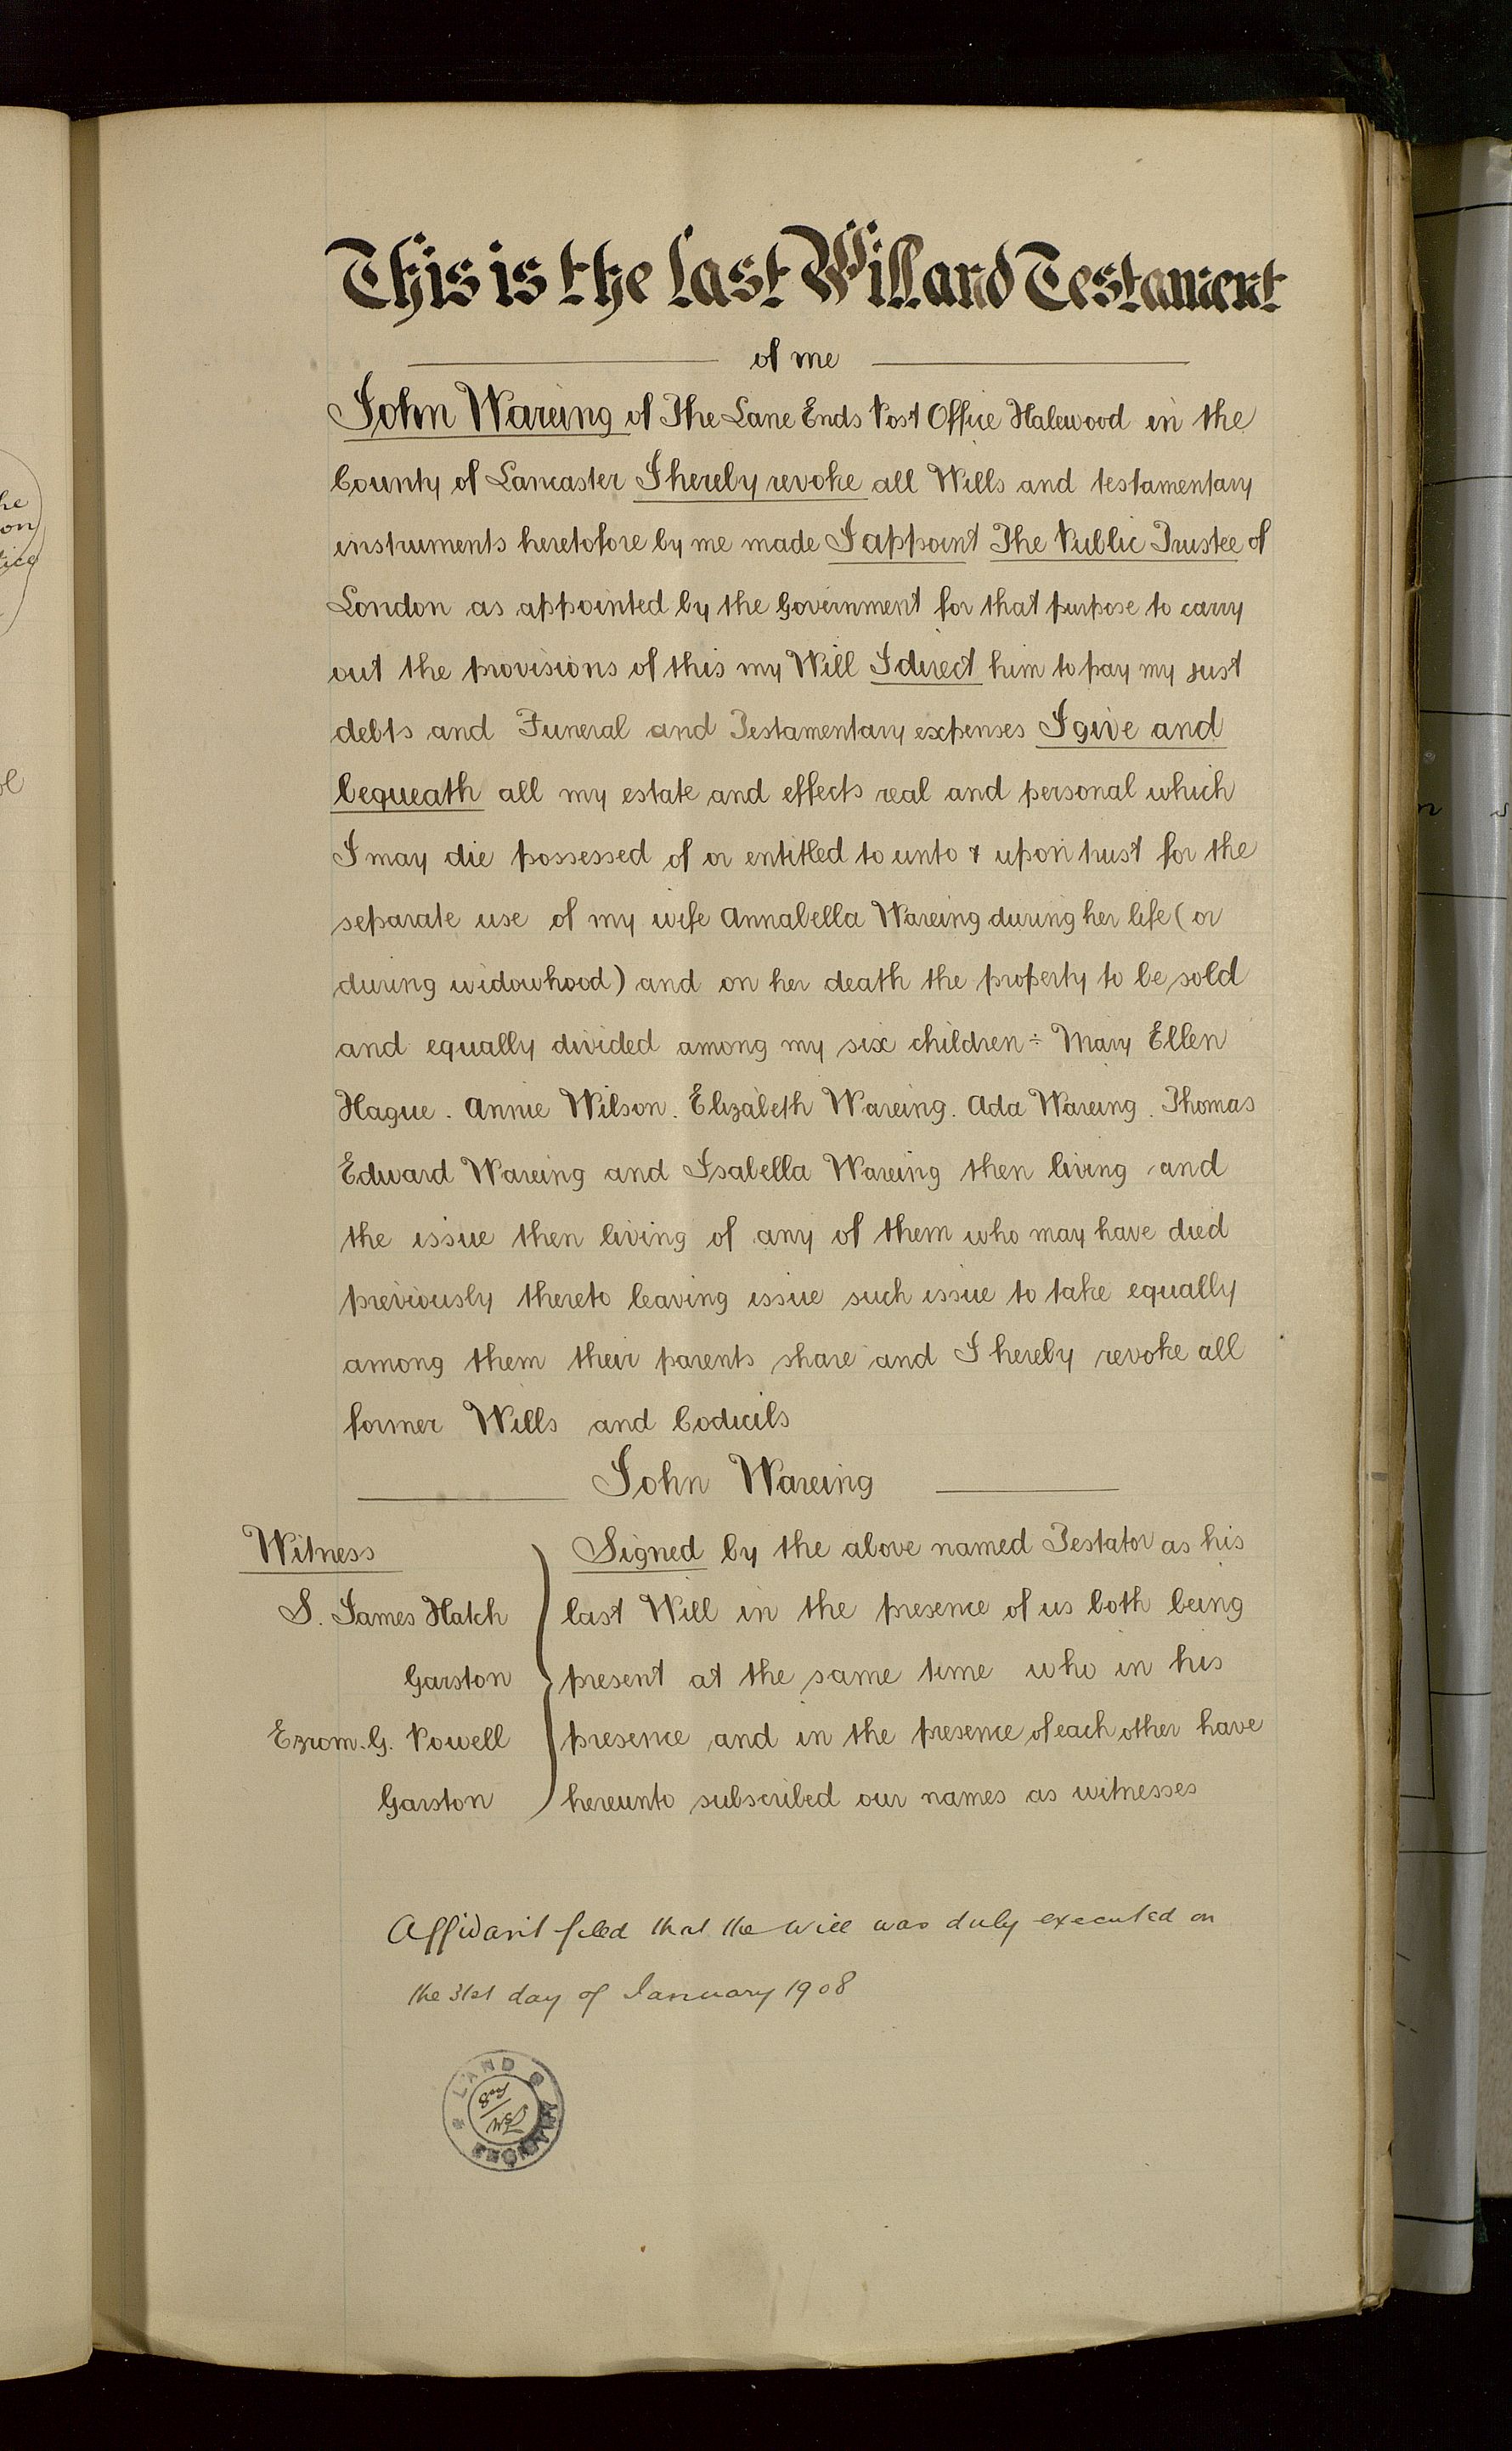 he
on
ice
This is the last Will and Testament
of me
John Wareing of The Lane Ends Post Office Halewood in the
County of Lancaster I hereby revoke all Wills and testamentary
instruments heretofore by me made I appoint The Public Trustee of
London as appointed by the Government for that purpose to carry
out the provisions of this my Will I direct him to pay my just
debts and Funeral and Testamentary expenses I give and
bequeath all my estate and effects real and personal which
I may die possessed of or entitled to unto & upon trust for the
separate use of my wife Annabella Wareing during her life (or
during widowhood) and on her death the property to be sold
and equally divided among my six children ÷ Mary Ellen
Hague . Annie Wilson . Elizabeth Wareing . Ada Wareing . Thomas
Edward Wareing and Isabella Wareing then living and
the issue then living of any of them who may have died
previously thereto leaving issue such issue to take equally
among them their parents share and I hereby revoke all
former Wills and Codicils
John Wareing
Witness
S. James Hatch
Garston
Ezrom. G. Powell
Garston
Signed by the above named Testator as his
last Will in the presence of us both being
present at the same time who in his
presence and in the presence of each other have
hereunto subscribed our names as witnesses
Affidavit filed that the will was duly executed on
the 31st day of January 1908
LAND